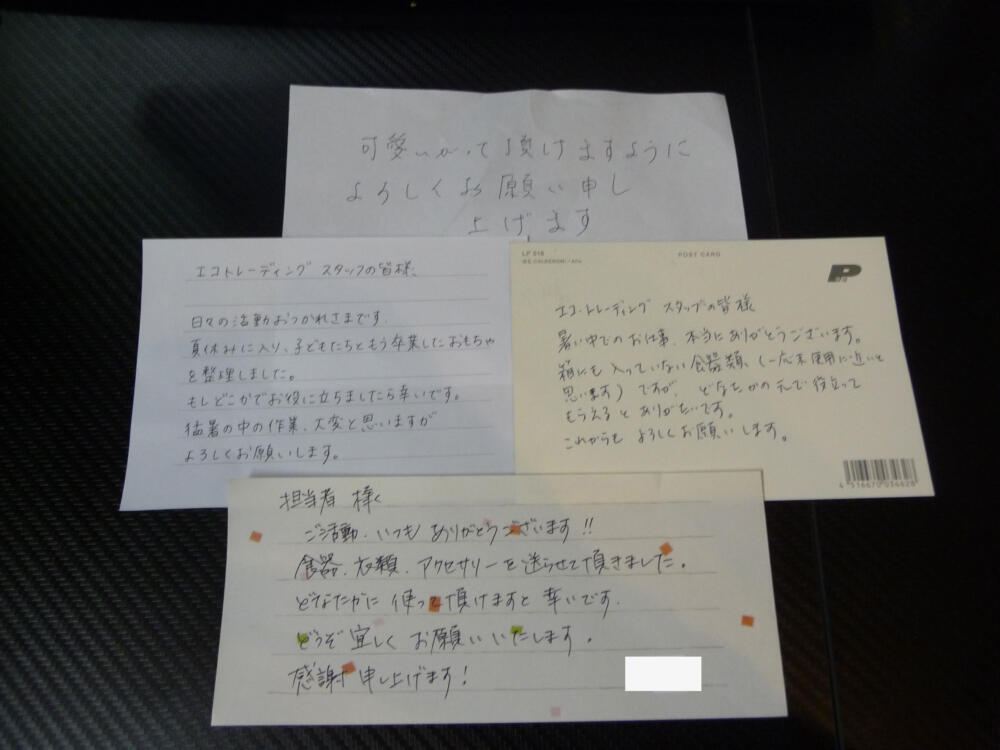 可愛いがって頂けますように
よろしくお願い申し
上げます
エコトレーディング スタッフの皆様
日々の活動おつかれさまです。
夏休みに入り、子どもたちともう卒業したおもちゃ
を整理しました。
もしどこかでお役に立ちましたら幸いです。
猛暑の中の作業、大変と思いますが
よろしくお願いします。
LP 518
POST CARD
エコ・トレーディング スタッフの皆様
暑い中でのお仕事、本当にありがとうございます。
箱にも入っていない食器類、(一応未使用に近いと
思います)ですが、どなたかの元で役立って
もらえるとありがたいです。
これからも よろしくお願いします。
4 516670 034628
担当者 様
ご活動、いつも ありがとうございます!!
食器、衣類、アクセサリーを送らせて頂きました。
どなたかに 使って頂けますと 幸いです.
どうぞ 宜しく お願いいたします.
感謝 申し上げます!